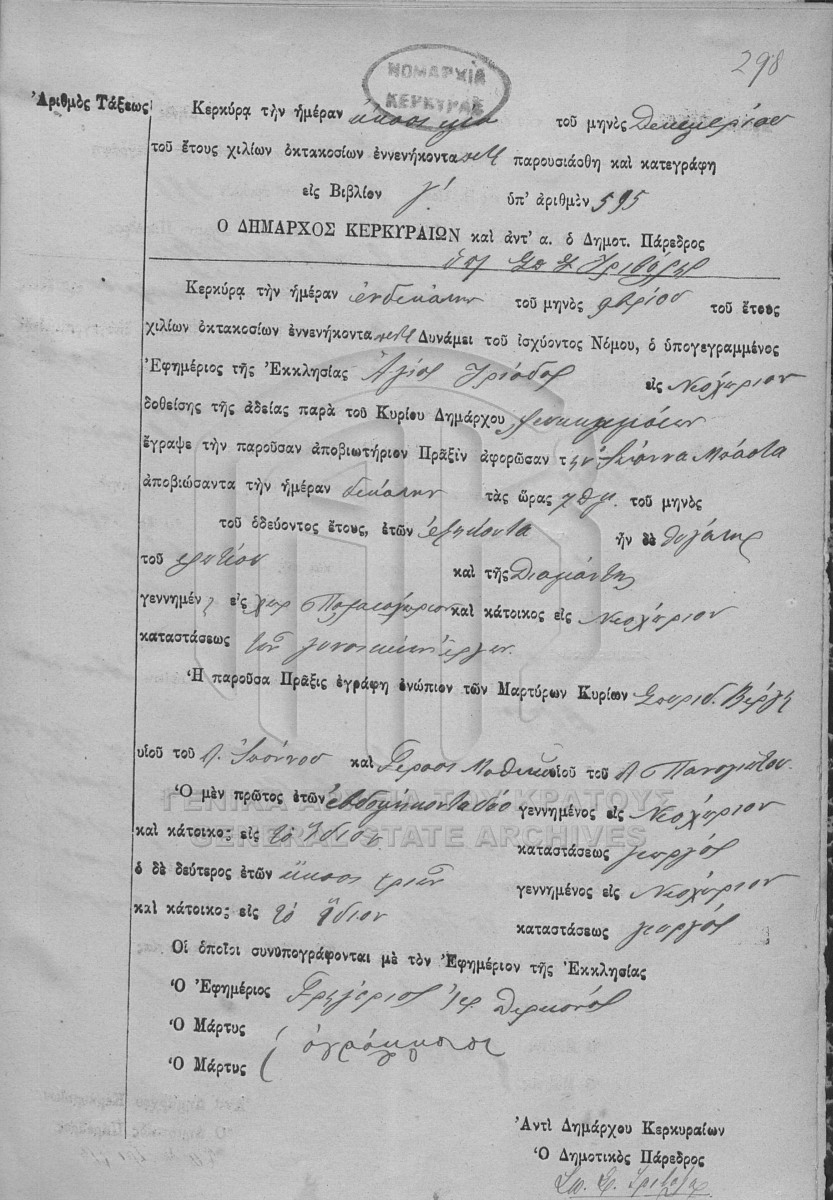 298
ΝΟΜΑΡΧΙΑ
ΚΕΡΚΥΡΑΣ
Ἀριθμὸς Τάξεως
Κερκύρᾳ τὴν ἡμέραν εἴκοσι μία τοῦ μηνὸς Δεκεμβρίου
τοῦ ἔτους χιλίων ὀκτακοσίων ἐννενήκοντα πέντε παρουσιάσθη καὶ κατεγράφη
εἰς Βιβλίον γ' ὑπ' ἀριθμὸν 595
Ο ΔΗΜΑΡΧΟΣ ΚΕΡΚΥΡΑΙΩΝ καὶ ἀντ' α. ὁ Δημοτ. Πάρεδρος
Κερκύρᾳ τὴν ἡμέραν ἑνδεκάτην τοῦ μηνὸς 9βρίου τοῦ ἔτους
χιλίων ὀκτακοσίων ἐννενήκοντα πέντε Δυνάμει τοῦ ἰσχύοντος Νόμου, ὁ ὑπογεγραμμένος
Ἐφημέριος τῆς Ἐκκλησίας Ἁγίας Τριάδος εἰς Νεοχώριον
δοθείσης τῆς ἀδείας παρὰ τοῦ Κυρίου Δημάρχου Λευκιμμαίων
ἔγραψε τὴν παροῦσαν ἀποβιωτήριον Πρᾶξιν ἀφορῶσαν τὴν Ἰωάννα Μπάστα
ἀποβιώσαντα τὴν ἡμέραν δεκάτην τὰς ὥρας 7 π.μ. τοῦ μηνὸς
τοῦ ὁδεύοντος ἔτους, ἐτῶν ἑξήκοντα ἦν δὲ θυγάτηρ
τοῦ καὶ τῆς Διαμάντης
γεννημέν η εἰς χωρ Παλαιοχώριον καὶ κάτοικος εἰς Νεοχώριον
καταστάσεως τῶν γυναικείων ἔργων
Ἡ παροῦσα Πρᾶξις ἐγράφη ἐνώπιον τῶν Μαρτύρων Κυρίων Σπυρίδ. Βέργη
υἱοῦ τοῦ Ἰωάννου καὶ υἱοῦ τοῦ Παναγιώτου
ΓΕΝΙΚΑ ΑΡΧΕΙΑ ΤΟΥ ΚΡΑΤΟΥΣ
Ὁ μὲν πρῶτος ἐτῶν ἑβδομήκοντα δύο γεννημένος εἰς Νεοχώριον
GENERAL STATE ARCHIVES
καὶ κάτοικος εἰς τὸ ἴδιον καταστάσεως γεωργός
ὁ δὲ δεύτερος ἐτῶν εἴκοσι τριῶν γεννημένος εἰς Νεοχώριον
καὶ κάτοικος εἰς τὸ ἴδιον καταστάσεως γεωργός
Οἱ ὁποῖοι συνυπογράφονται μὲ τὸν Ἐφημέριον τῆς Ἐκκλησίας
Ὁ Ἐφημέριος Γρηγόριος ἱερ.
Ὁ Μάρτυς ἀγράμματοι
Ὁ Μάρτυς
Ἀντὶ Δημάρχου Κερκυραίων
Ὁ Δημοτικὸς Πάρεδρος